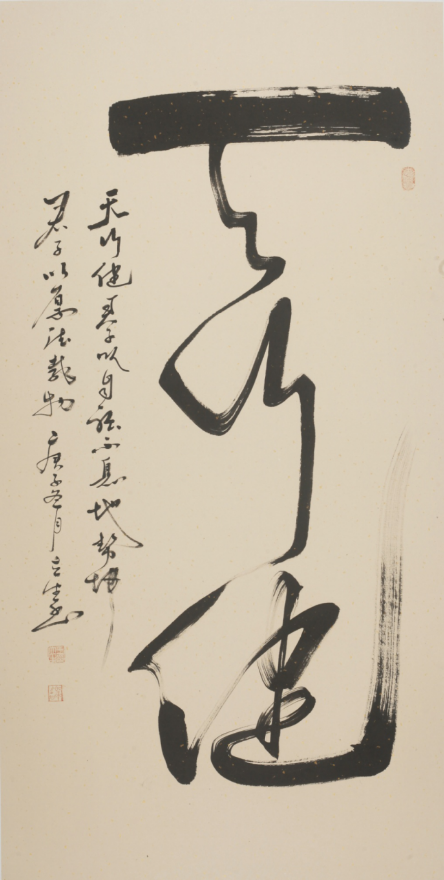 天行健
天行健君子以自強不息地勢坤
君子以厚德載物 庚子